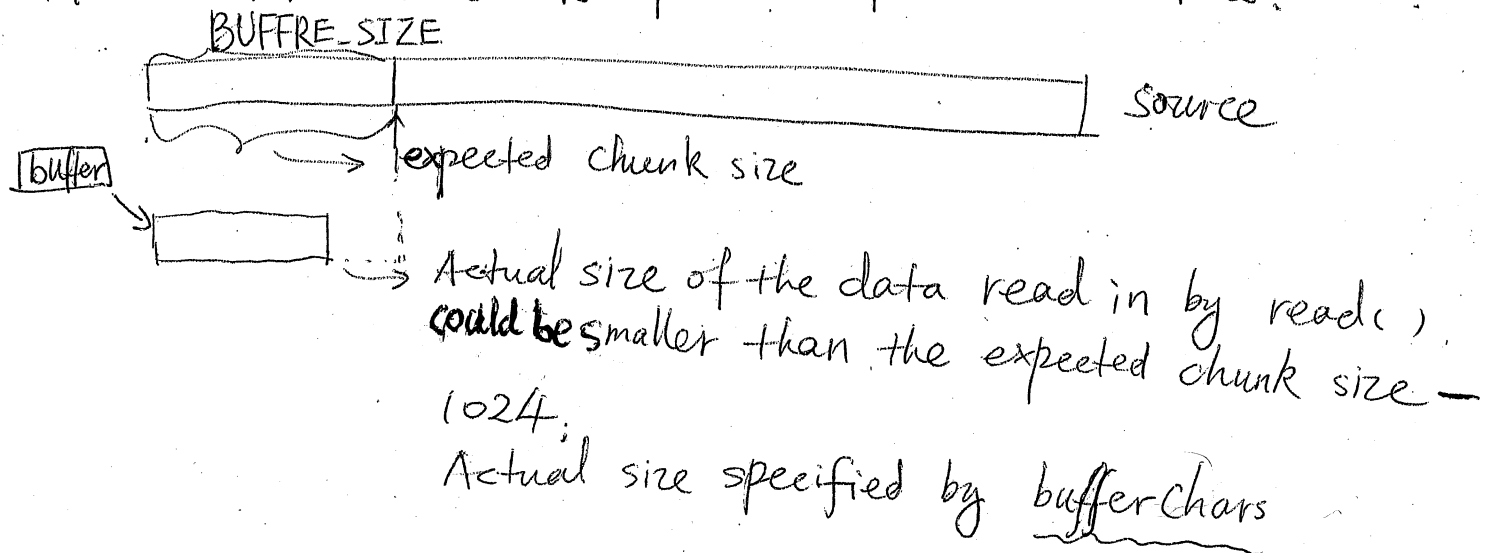 BUFFRE_SIZE
source
expected chunk size
buffer
Actual size of the data read in by read( ).
could be smaller than the expected chunk size –
1024;
Actual size specified by bufferChars